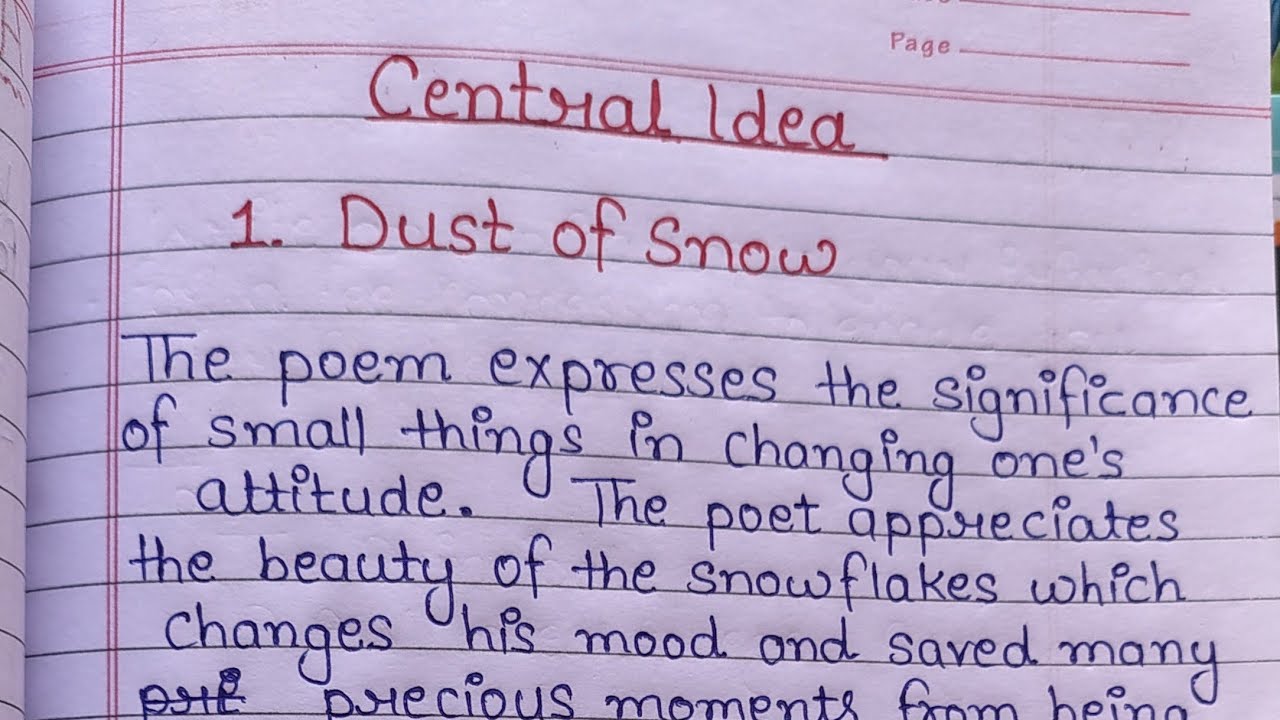 Page
Central Idea
1. Dust of Snow
The poem expresses the significance
of small things in changing one's
attitude. The poet appreciates
the beauty of the snowflakes which
changes his mood and saved many
precious moments from being